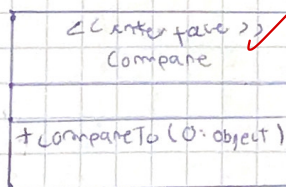 <<interface>>
Compare
+compareTo(O: object)